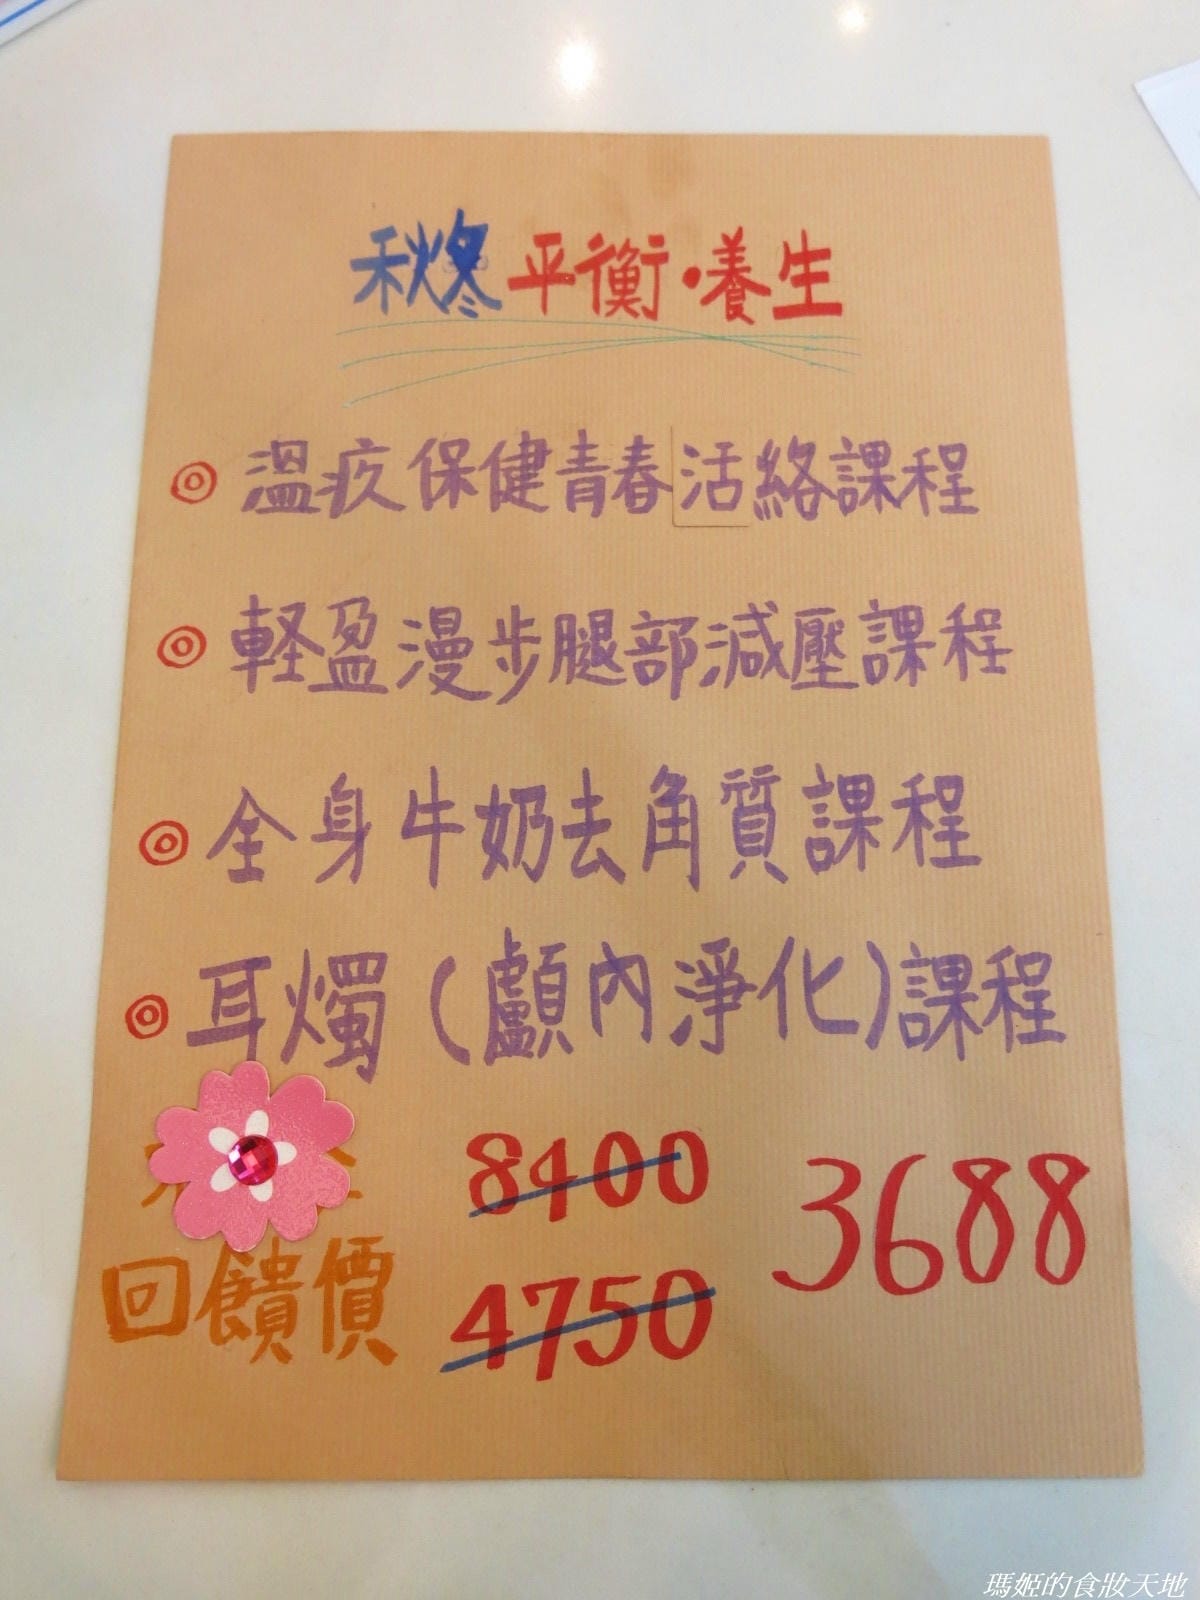 秋冬平衡·養生
◎溫疚保健青春活絡課程
◎軽盈漫步腿部減壓課程
◎全身牛奶去角質課程
◎耳燭(顱內淨化)課程
回饋價
8400
4750
3688
瑪姬的食妝天地